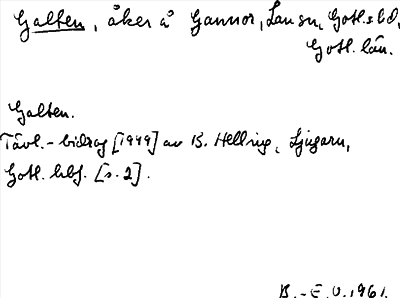 Galten, åker å Gannor, Lau sn, Gotl. s hd,
Gotl. län.
Galten.
Tävl.-bidrag [1949] av B. Hellring, Ljugarn,
Gotl. hbf. [s. 2].
B.-E. U. 1961.